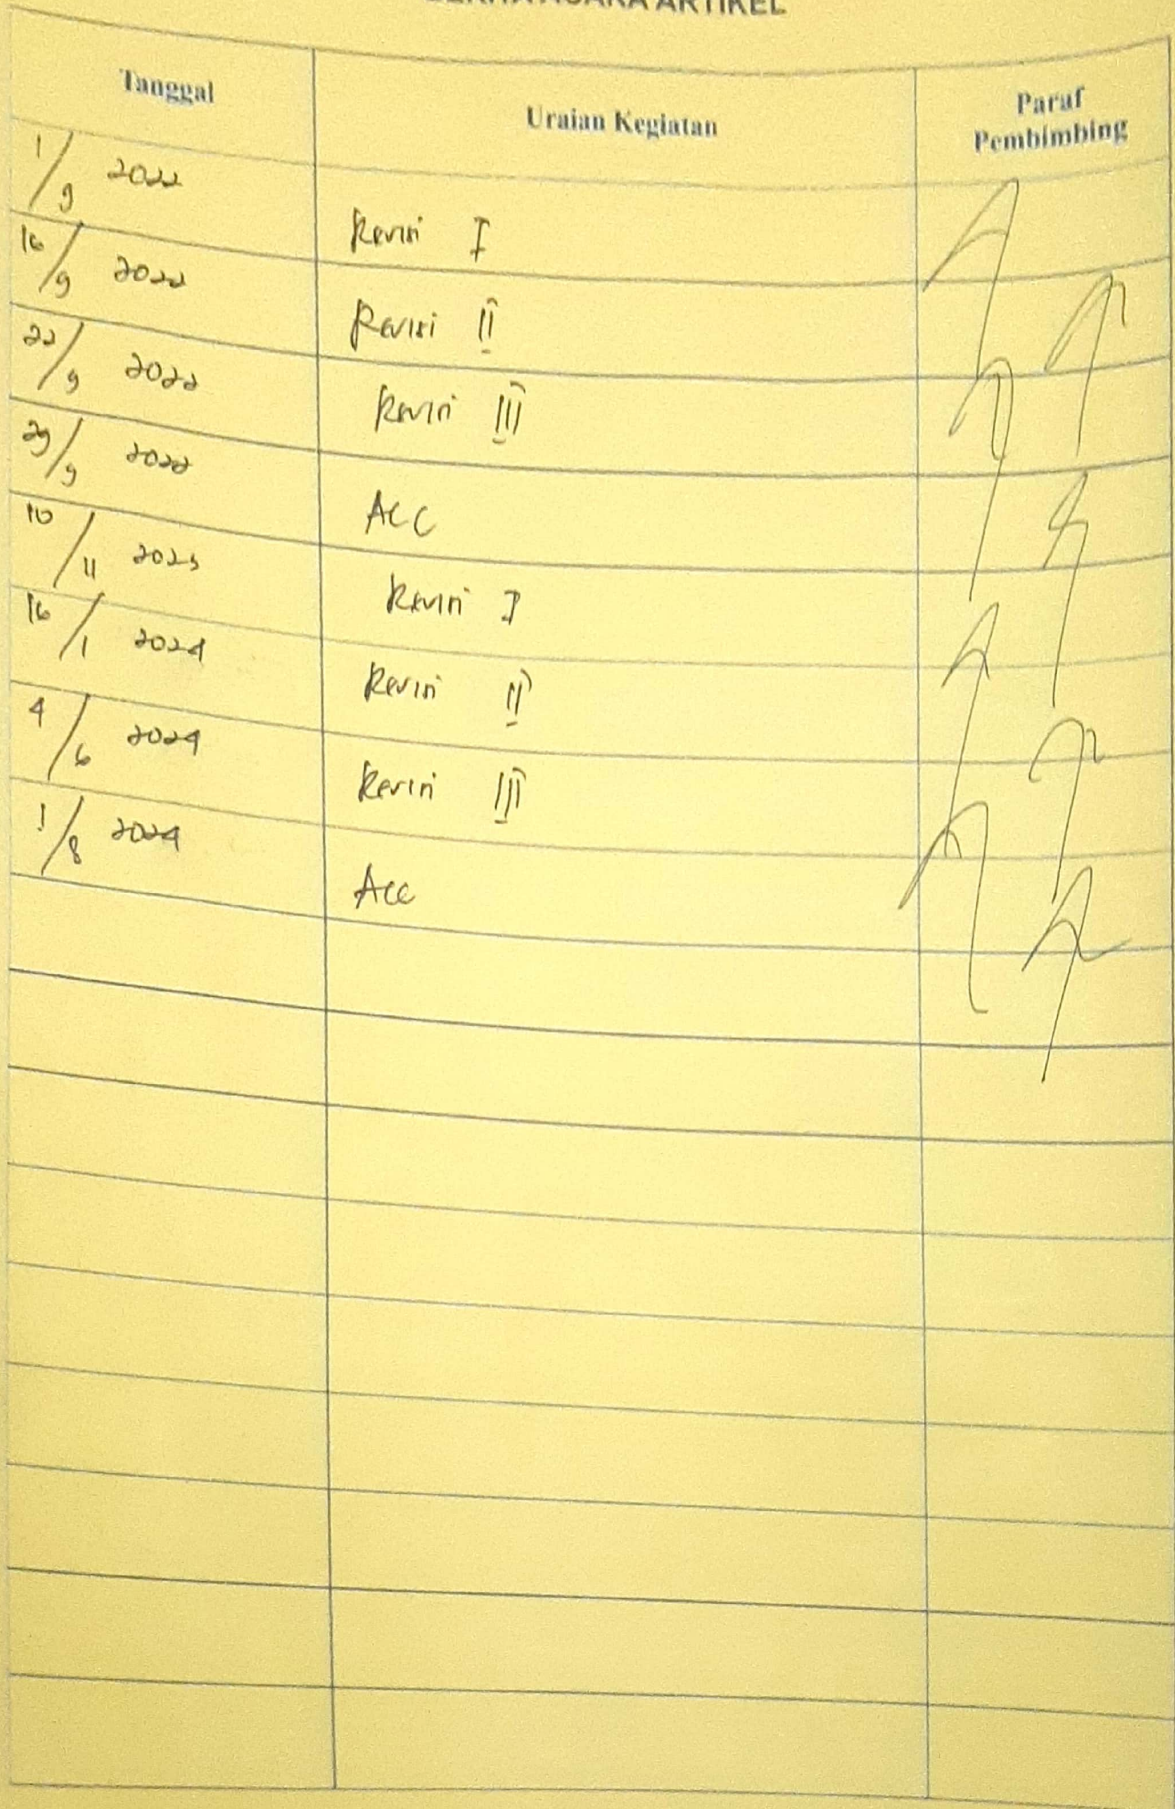 BERITA ACARA ARTIKEL
Tanggal Uraian Kegiatan Paraf
Pembimbing
1/9 2022 Revisi I
16/9 2022 Revisi II
22/9 2022 Revisi III
29/9 2022 ACC
10/11 2023 Revisi I
16/1 2024 Revisi II
4/6 2024 Revisi III
1/8 2024 Acc